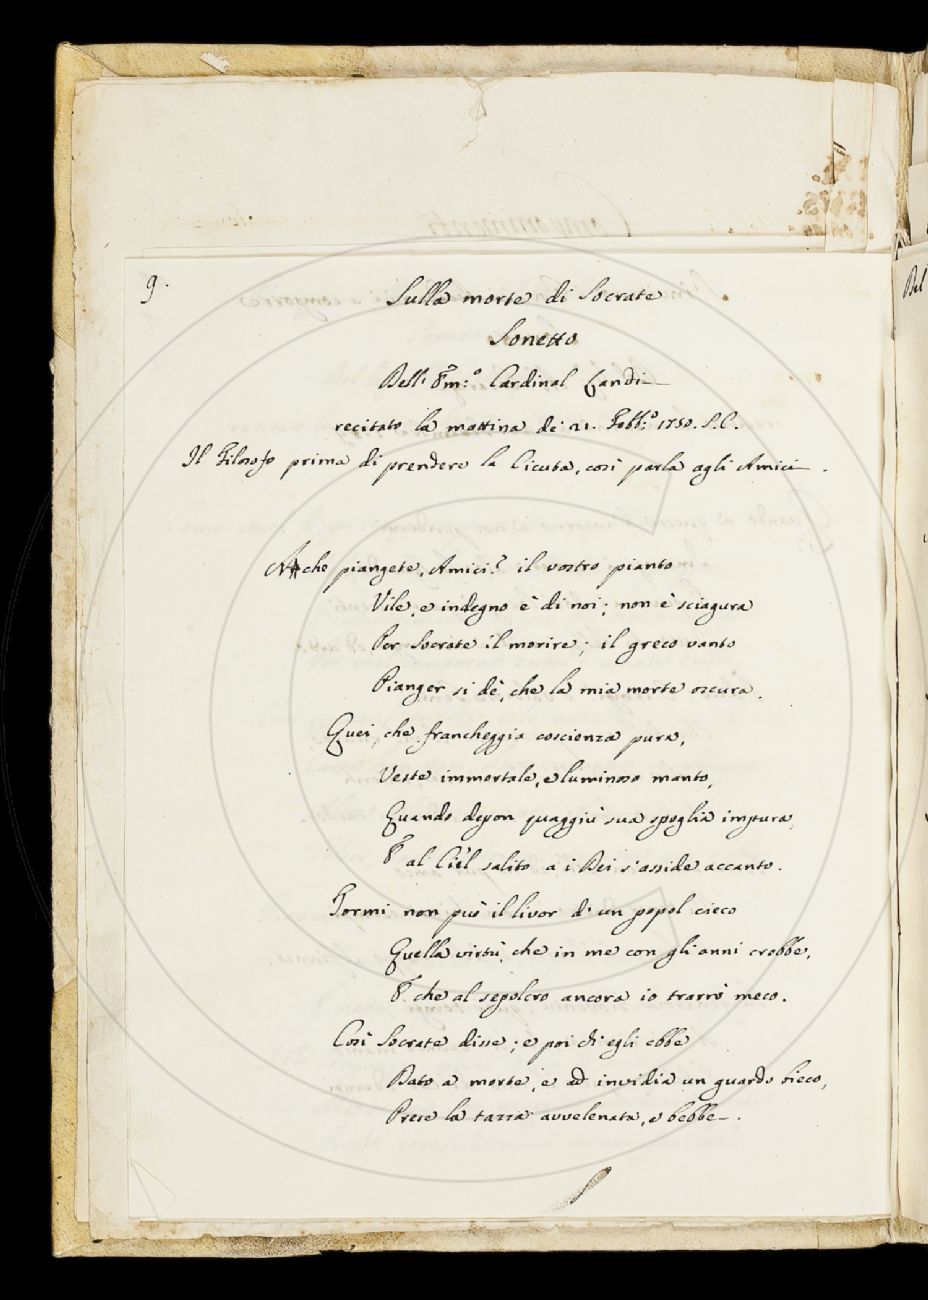 9.
Sulla morte di Socrate
Sonetto
Dell' Em:º Cardinal Landi
recitato la mattina de 21. Febb:º 1750. S.C.
Il Filosofo prima di prendere la Cicuta, così parla agli Amici.
A che piangete, Amici? il vostro pianto
Vile, e indegno è di noi; non è sciagura
Per Socrate il morire; il greco vanto
Pianger si dè, che la mia morte oscura.
Quei, che francheggia coscienza pura,
Veste immortale, e luminoso manto,
Quando depon quaggiù sua spoglia impura,
E al Ciel salito a i Dei s'asside accanto.
Tormi non può il livor d'un popol cieco
Quella virtù, che in me con gli anni crebbe,
E che al sepolcro ancora io trarrò meco.
Così Socrate disse; e poi ch'egli ebbe
Dato a morte, e ad invidia un guardo bieco,
Prese la tazza avvelenata, e bebbe.